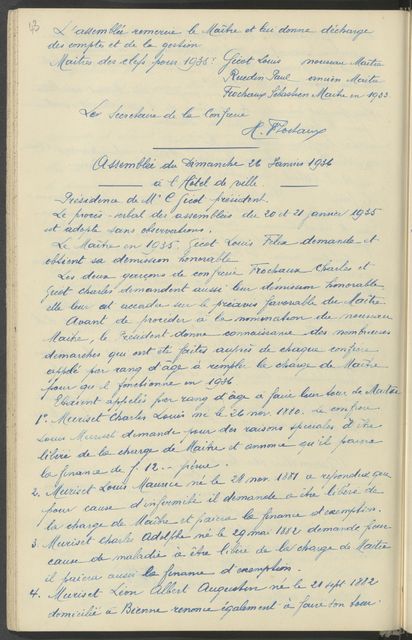 73
L'assemblée remercie le Maître et leu donne décharge
des comptes et de la gestion
Maîtres des clefs pour 1935: Gicot Louis nouveau Maître
Ruedin Paul ancien Maître
Frochaux Sébastien Maître en 1933
Le Secrétaire de la Confrérie
H. Frochaux
Assemblée du Dimanche 26 Janvier 1936
à l'Hôtel de ville
Présidence de Mr C Gicot président.
Le procès-verbal des assemblées du 20 et 21 janvier 1935
est adopté sans observations.
Le Maître en 1935. Gicot Louis Félix demande et
obtient sa démission honorable
Les deux garçons de confrérie Frochaux Charles et
Gicot Charles demandent aussi leur démission honorable
elle leur est accordée sur le préavis favorable du Maître
Avant de procéder à la nomination du nouveau
Maître, le Président donne connaissance des nombreuses
démarches qui ont été faites auprès de chaque confrère
appelé par rang d'âge à remplir la charge de Maître
pour qu'il fonctionne en 1936
Étaient appelés par rang d'âge à faire leur tour de Maître
1º. Muriset Charles Louis né le 26 nov. 1880. Le confrère
Louis Muriset demande pour des raisons spéciales d'être
libéré de la charge de Maître et annonce qu'il paiera
la finance de f. 12.- prévue.
2. Muriset Louis Maurice né le 28 nov. 1881 a répondu que
pour cause d'infirmité il demande à être libéré de
la charge de Maître et paiera la finance d'exemption.
3. Muriset Charles Adolphe né le 29 mai 1882 demande pour
cause de maladie à être libéré de la charge de Maître
il paiera aussi la finance d'exemption.
4. Muriset Léon Albert Augustin né le 28 sept 1882
domicilié à Bienne renonce également à faire son tour.